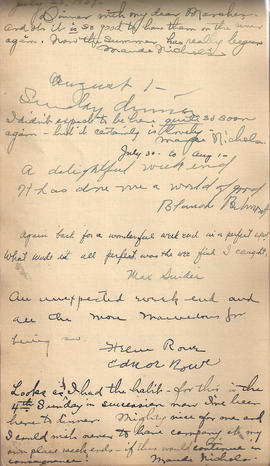 July
Dinner with my dear
and oh it is so good to have them on the river
again. Now the summer has really begun
Maude Nichols
August 1-
Sunday dinner
I didn't expect to be here quite so soon
again - but it certainly is lovely
Maude Nichols
July 30- to Aug 1-
A delightful week end
It has done me a world of good
Blanch
Again back for a wonderful week end in a perfect spot
What made it all perfect was the wee fish I caught.
Max
An unexpected week end and
all the more marvelous for
being so.
Irene Rowe
Rowe
Looks as if I had the habit - for this is the
4th Sunday in succession now I've been
here to dinner. Mighty nice for me and
I could wish never to have company at my
own place week ends - if this would continue in
consequence!
Maude Nichols